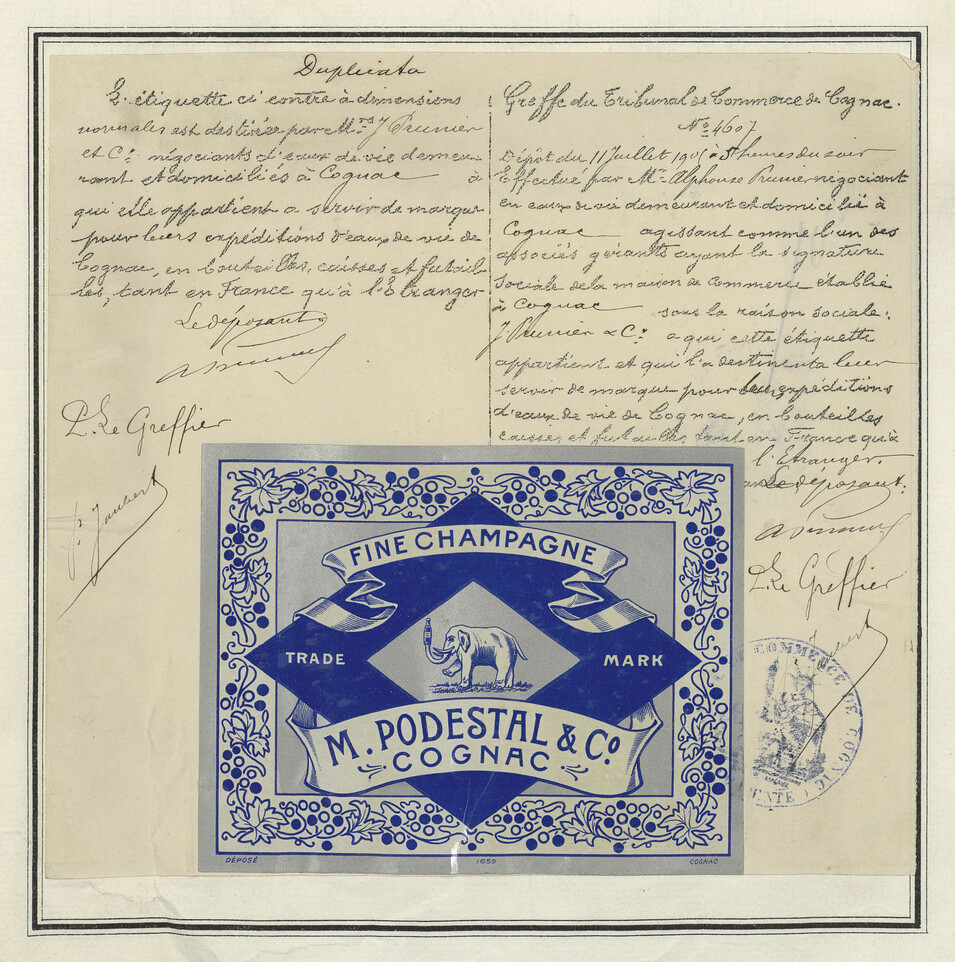 Duplicata
L'étiquette ci contre à dimensions
normales est destinée par Mrs J Prunier
et Co négociants d'eaux de vie demeu-
rant et domiciliés à Cognac à
qui elle appartient a servir de marque
pour leurs expéditions d'eaux de vie de
Cognac, en bouteilles, caisses et futail-
les, tant en France qu'à l'Etranger
Le déposant
P. Le Greffier
Greffe du Tribunal de Commerce de Cognac.
No 4607
Dépôt du 11 Juillet à 5 heures du soir
Effectué par Mr Alphonse Prunier négociant
en eaux de vie demeurant et domicilié à
Cognac agissant comme l'un des
associés gérants ayant la signature
sociale de la maison de commerce établie
à Cognac sous la raison sociale:
J Prunier & Co a qui cette étiquette
appartient et qui l'a destinent a leur
servir de marque pour leurs expéditions
d'eaux de vie de Cognac, en bouteilles
caisses et futailles, tant en France qu'à
l'Etranger.
Le déposant:
P. Le Greffier
FINE CHAMPAGNE
TRADE MARK
M. PODESTAL & Co
COGNAC
DÉPOSÉ 1659 COGNAC
COMMERCE DE COGNAC